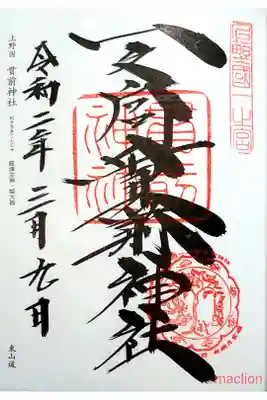 上野國一宮
一之宮貫前神社
貫前
神社
令和二年三月九日
上野国 貫前神社
東山道
maclion